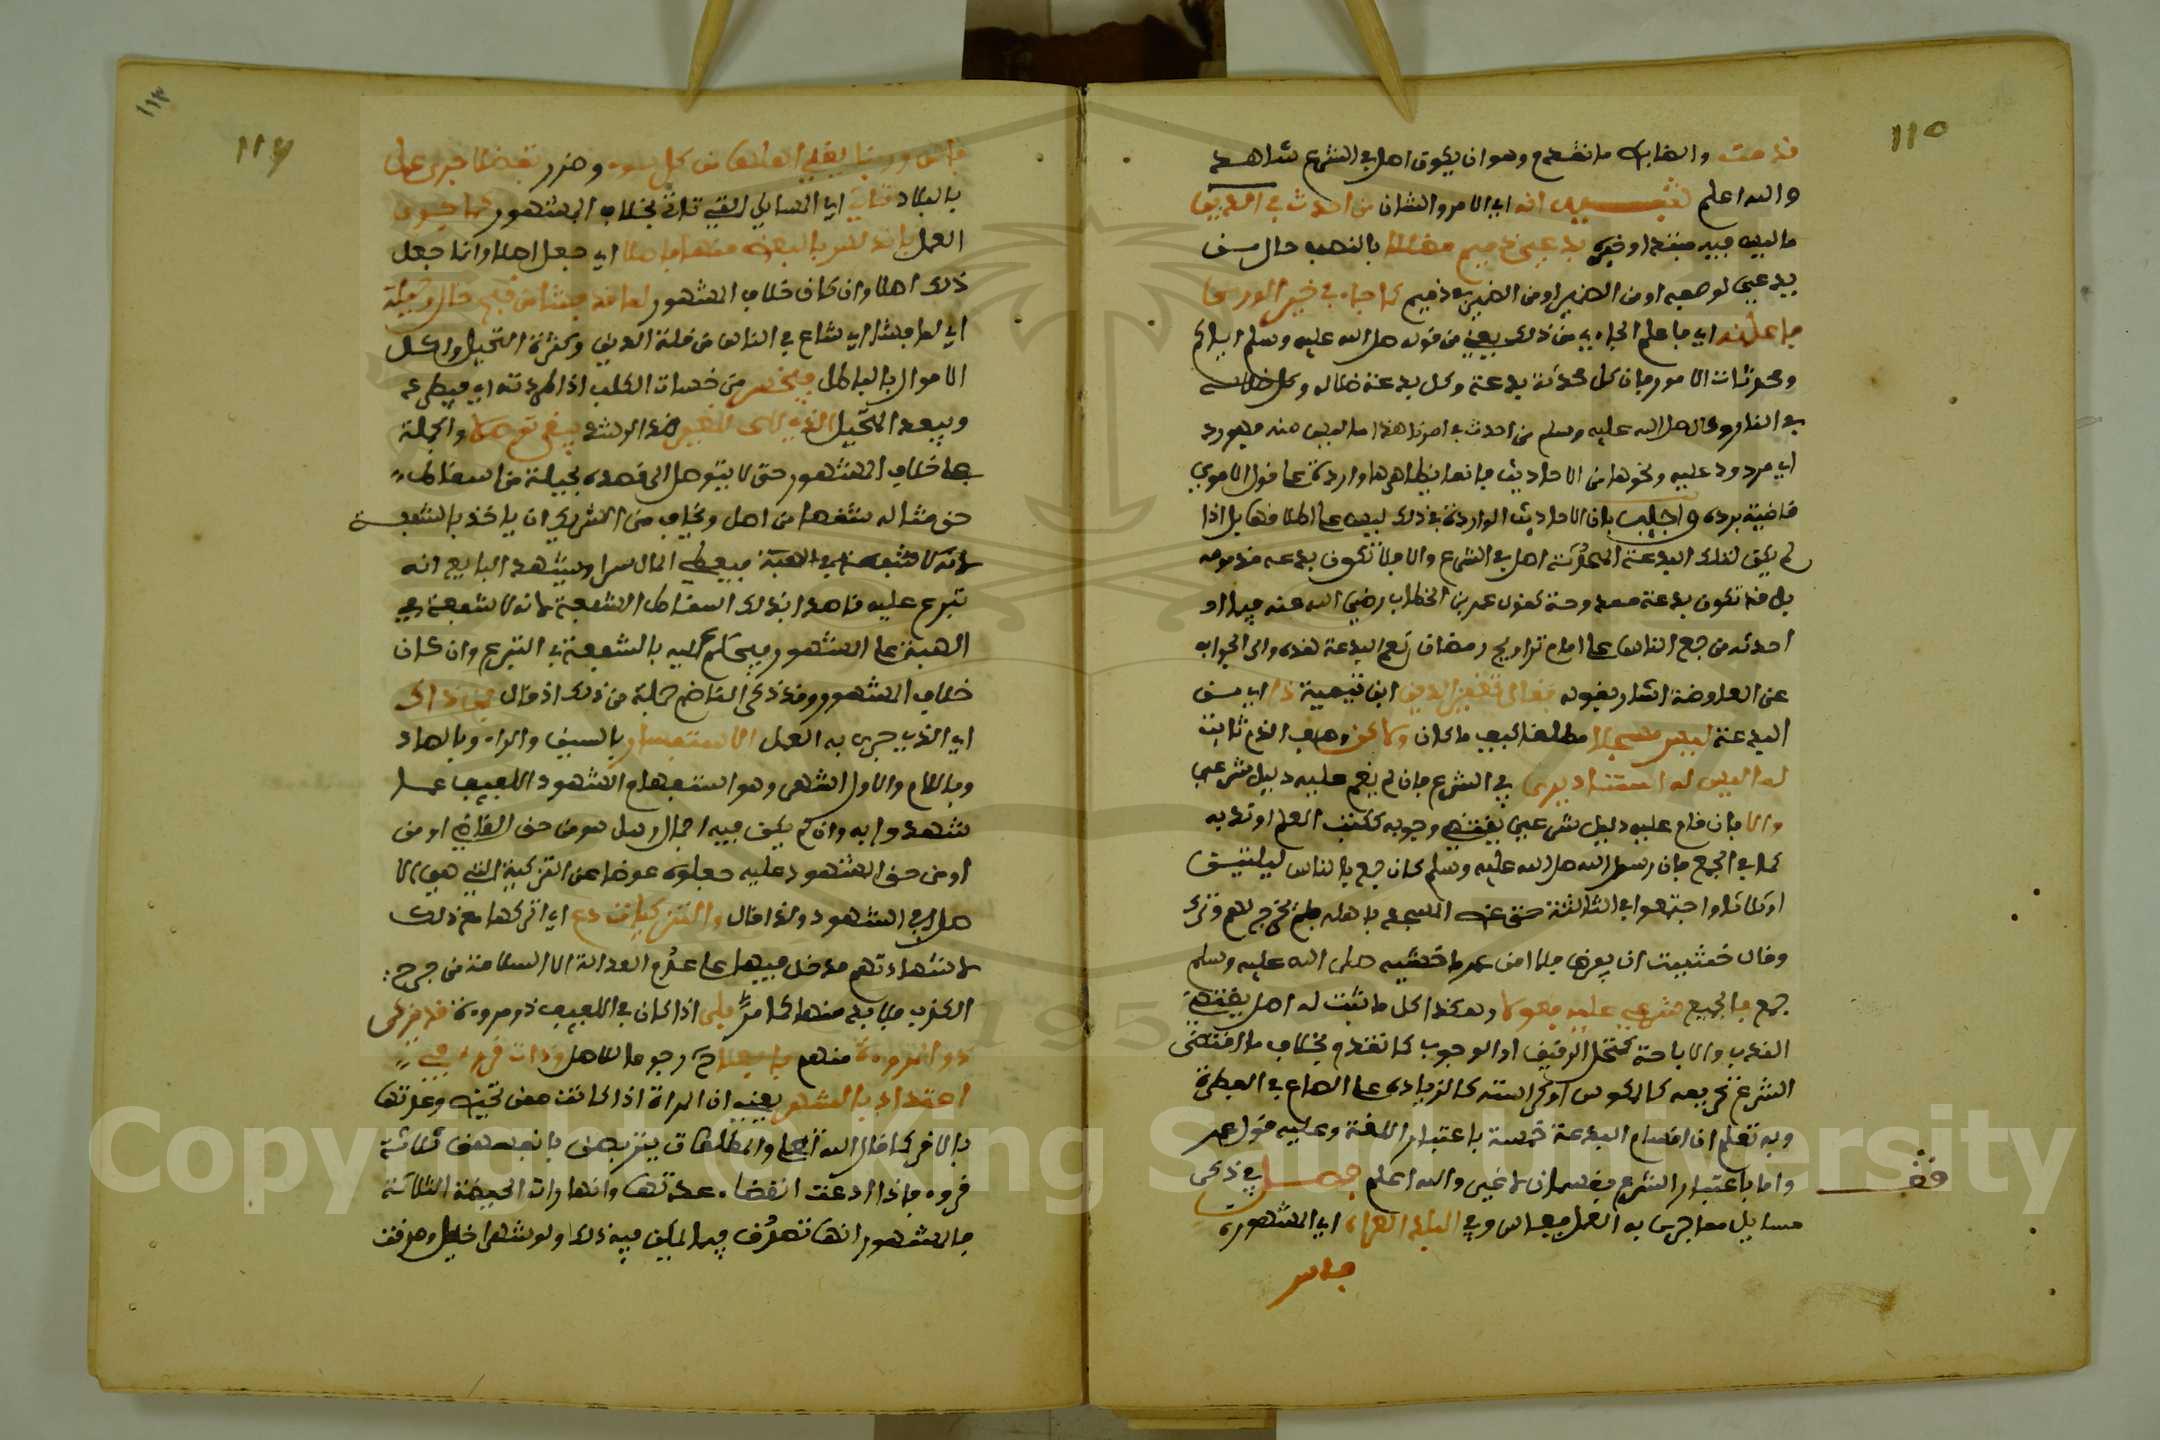 ١١٥
قد مت والضابط ما تقدم وهو ان يكون اصل في الشرع شاهد
والله اعلم تنبيه انه اي الامر والشان من احدث في الدين
ما ليس فيه مبتدا وخبره بدعي ذميم مطلقا بالنصب حال من
بدعي لوصفه او من الضمير او من الضمير في ذميم كما جاء في خبر الورى
ما علمه اي ما علم الجاءي من ذلك يعني من قوله صلى الله عليه وسلم اياكم
ومحدثات الامور فان كل محدثة بدعة وكل بدعة ضلالة وكل ضلالة
في النار وقال صلى الله عليه وسلم من احدث في امرنا هذا ما ليس منه فهو رد
اي مردود عليه ونحوها من الاحاديث فانها بظاهرها واردة على قول الاصولي
قاضية برده واجيب بان الاحاديث الواردة في ذلك ليس على اطلاقها بل اذا
لم يكن لتلك البدعة المحدثة اصل في الشرع والا فلا تكون بدعة مذمومة
بل قد تكون بدعة ممدوحة كقول عمر بن الخطاب رضي الله عنه فيما
احدثه من جمع الناس على امام تراويح رمضان نعم البدعة هذه والى الجواب
عن المعارضة اشار بقوله فقال تقي الدين ابن تيمية ذا اي من
البدعة ليس مسجلا مطلقا كيف ما كان ولكن وصف الذم ثابت
لما ليس له استناد يرى في الشرع فان لم يقم عليه دليل شرعي
والا فان قام عليه دليل شرعي يقتضي وجوبه ككتب العلم او ندبه
كما في الجمع فان رسول الله صلى الله عليه وسلم كان جمع بالناس ليلتين
او ثلاثا واجتمعوا في الثالثة حتى غص المسجد باهله فلم يخرج لهم وترك
وقال خشيت ان يفرض فلما امن عمر ما خشيه صلى الله عليه وسلم
جمع فالجميع شرعي عليه معولا وهكذا كل ما ثبت له اصل يقتضي
الندب والاباحة كنخل الدقيق او الوجوب كما تقدم بخلاف ما اقتضى
الشرع تحريمه كالمكوس او كراهته كالزيادة على الصاع في الفطرة
وبه تعلم ان اقسام البدعة خمسة باعتبار اللغة وعليه قول عمر
واما باعتبار الشرع فقسمان لا غير والله اعلم فصل في ذكر
قف
مسايل مما جرى به العمل بفاس وفي البلد الغراء اي المشهورة
فاس
١١٣
١١٦
فاس وربنا يقي اهلها من كل سوء وضرر بعض ما جرى على
بالبلاد قات اي المسايل التي تاتي بخلاف المشهور مما جرى
العمل بانه للبعض منها فاصلا اي جعل اصلا وانما جعل
ذلك اصلا وان كان خلاف المشهور لما قد فشا من قبح حال وحيلة
اي لما فشا اي شاع في الناس من قلة الدين وكثرة التحيل واكل
الاموال بالباطل فيخسر من خسات الكلب اذا طردته اي فيطرد
ويبعد المتحيل الذي للغير ضد الرشد يبغي توصلا والحيلة
بها خلاف المشهور حتى لا يتوصل الى قصده بحيلة من اسقاط
حق مثاله شقصا من اصل ويخاف من الشريك ان ياخذ بالشفعة
لانه لا شفعة في الهبة فيعطي المال سرا ويشهد البايع انه
تبرع عليه قاصدا بذلك اسقاط الشفعة لانه لا شفعة في
الهبة على المشهور فيحكم عليه بالشفعة في التبرع وان كان
خلاف المشهور وقد ذكر الناظم جملة من ذلك اذ قال فمن ذاك
اي الذي جرى به العمل الاستفسار بالسين والراء وبالصاد
وباللام والاول اشهر وهو استفهام الشهود اللفيف عما
شهدوا به وان لم يكن فيه اجمال بل هو من حق القاضي او من
او من حق المشهود عليه جعلوه عوضا عن التزكية التي هي الا
صل في الشهود ولذا قال والتزكيات دع اي اتركها مع ذلك
لان شهادتهم مدخل فيها على عدم العدالة الا السلامة من جرح
الكذب فلا بد منها كما مر بلى اذا كان في اللفيف ذو مروءة قد مزكى
ذو المروءة منهم فاجعلا ثم رجوعا للاصل وذات قروء في
اعتداد بالشهر يعني ان المراة اذا كانت ممن تحيض وعدتها
بالاقر كما قال الله تعالى والمطلقات يتربصن بانفسهن ثلاثة
قروء فاذا ادعت انقضاء عدتها وانها رات الحيضة الثالثة
فالمشهور انها تصدق فيما يمكن فيه ذلك ولو شهرا خليل وصدقت